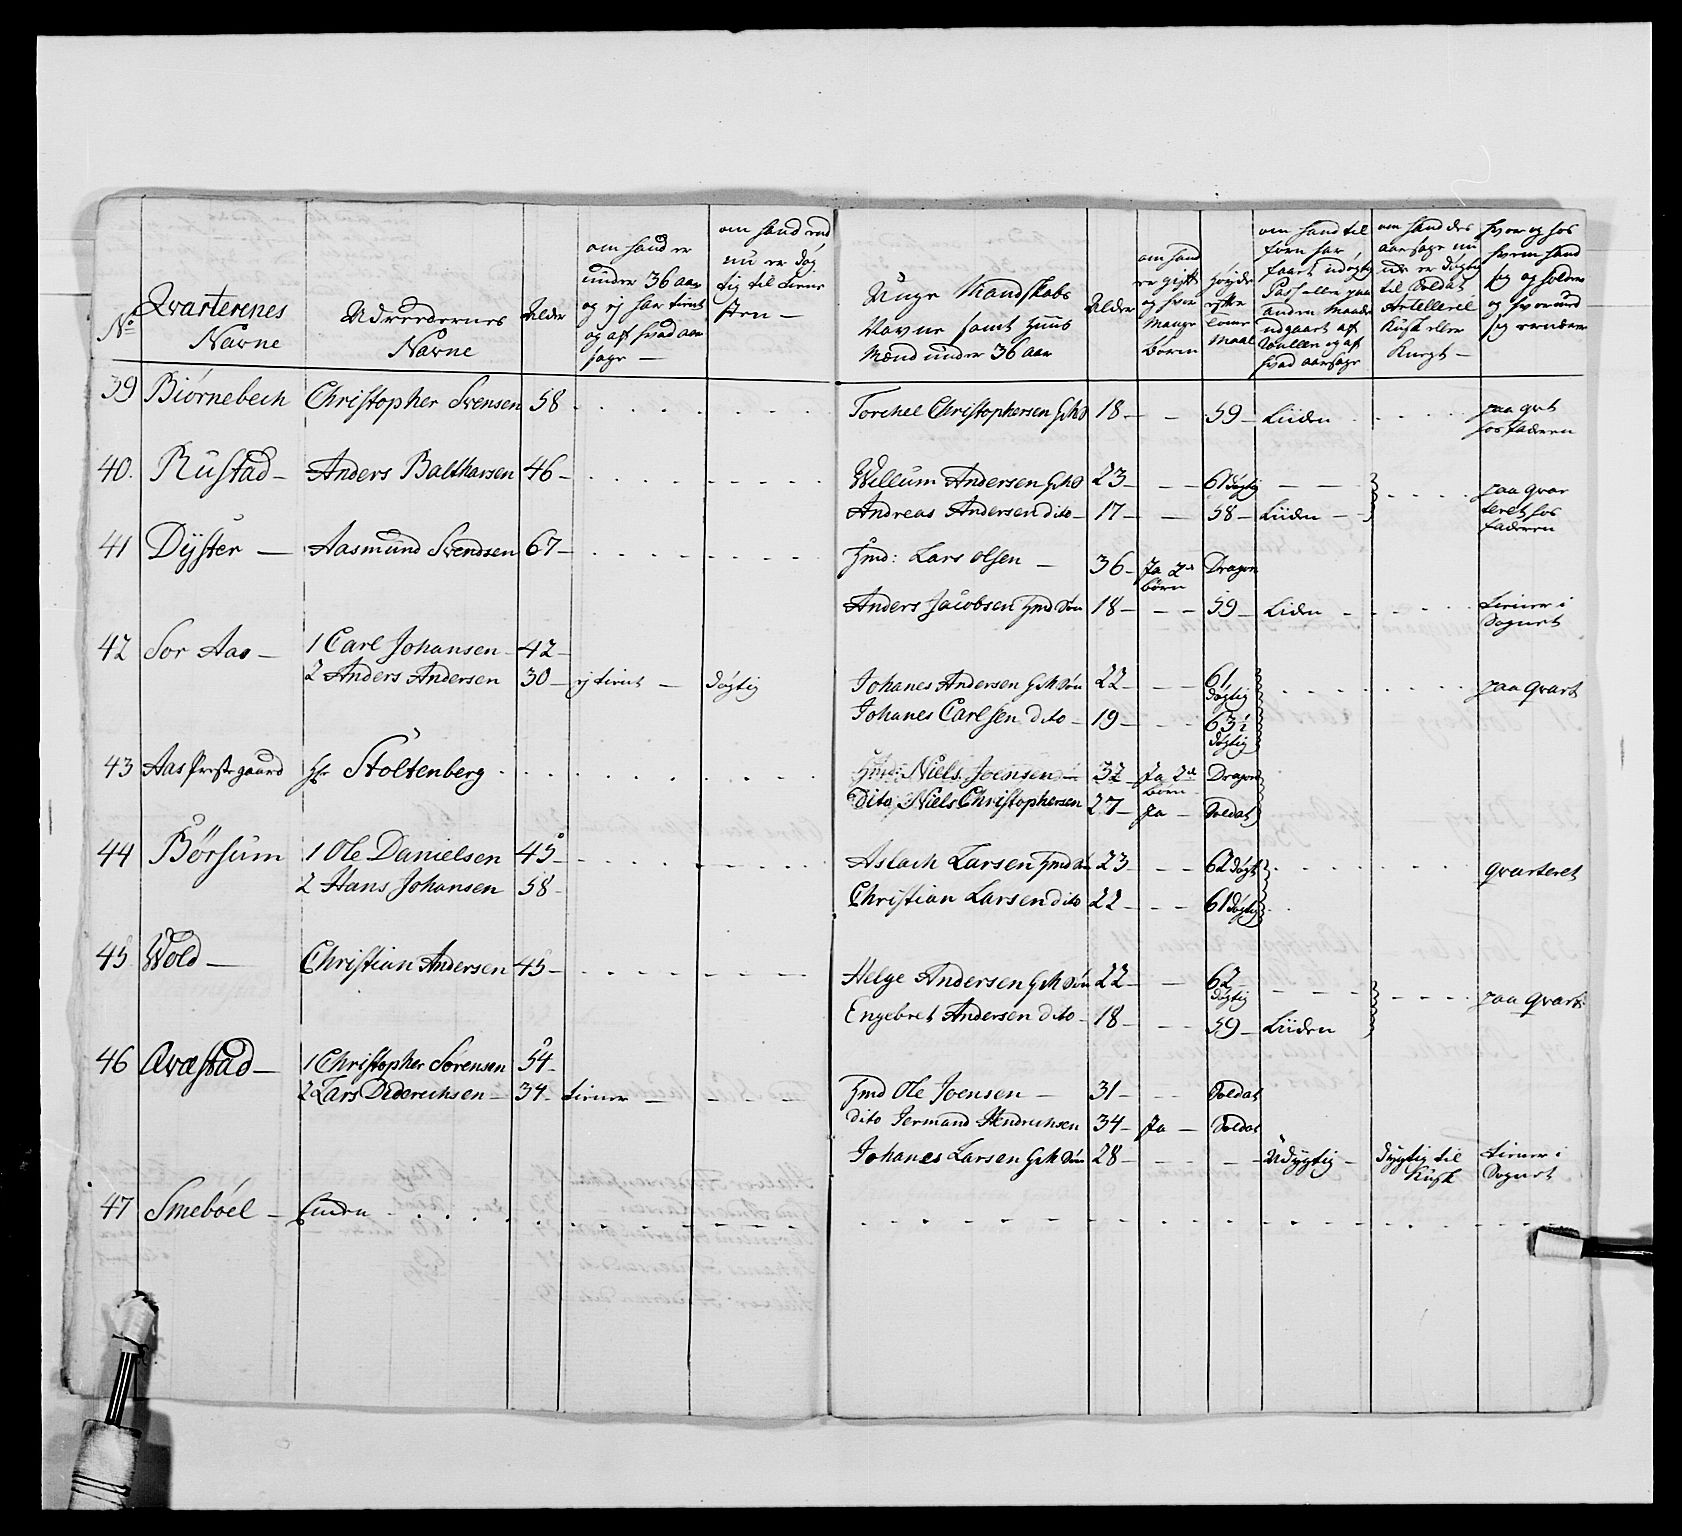 No
Qvarterenes
Navne
Udreedernes
Navne
Alder
om hand er
under 36 aar
og ej har tient
og af hvad aar
sage —
om hand end
nu er døg
tig til Tiene
sten —
Unge Mandskabs
Navne samt Huus
Mænd under 36 aar
Alder
om hand
er gift
og hvor
Mange
børn
høyde
efter
Maal
om hand til
forn har
faaet udøgtig
Pas eller paa
anden Maade
udgaaet af
Rullen og af
hvad aarsage
om hand des
aarsage nu
til Soldat
Artellerie
Kusk eller
Knegt —
hvor og hos
hvem hand
sig og
og hvorved
sig
39 Biørnebech Christopher Svensen 58 Torchel Christophersen 18 — — 59 — Liiden paa qvt
hos faderen
40. Rustad — Anders Baltharsen 46 — Willum Andersen 23 — — 61 døgtig — — paa qvar
teret hos
faderen
Andreas Andersen dito — 17 — — 58 — Liiden —
41 Dyster — Aasmund Svendsen 67 — Hmd: Lars Olsen — 36 — Ja 2de
børn Dragon
Anders Jacobsen Hmd Søn 18 — — 59 — Liden — Tiener i
Sognet
42 Sør Aas — 1 Carl Johansen — 42 —
2 Anders Andersen 30 — ej tient — døgtig Johanes Andersen GM Søn 22 — — 61
døgtig paa qvart
Johanes Carlsen dito — 19 — — 63½
døgtig
43 Aas Prestegaard Hr Stoltenberg Hmd: Niels Joensen — 32 — Ja 2de
børn Dragon
dito Niels Christophersen 27 — Ja — Soldat
44 Børsum 1 Ole Danielsen 45 — Aslach Larsen Hmd Søn 23 — — 62 døgt qvarteret
2 Hans Johansen 58 — Christian Larsen dito 22 — — 61 døgtig
45 Wold — Christian Andersen 45 — Helge Andersen GM Søn 22 — — 62
døgtig paa qvart:
Engebret Andersen dito — 18 — — 59 — Liiden
46 Qvæstad — 1 Christopher Sørensen 54 —
2 Lars Diderichsen — 34 — tiener — Hmd Ole Joensen — 31 — — Soldat
dito Jermand Hendrichsen 34 — Ja — Soldat
Johanes Larsen GM Søn 28 — — — Udygtig — dygtig til
Kusk Tiener i
Sognet
47 Smebøel — Enden